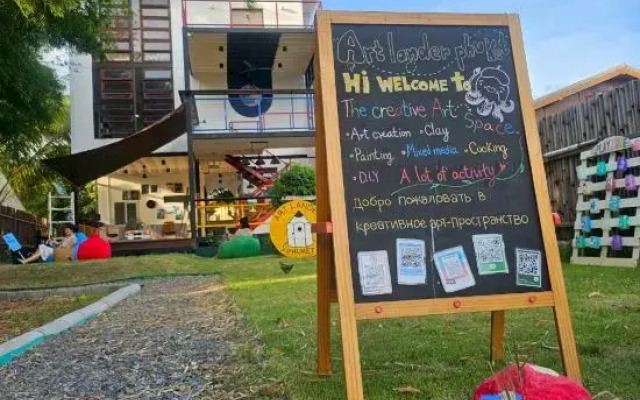 Art lander phuket
Hi Welcome to
The creative Art Space
• Art creation • Clay
• Painting • Mixed media • Cooking
• D.I.Y A lot of activity
Добро пожаловать в
креативное арт-пространство
ART LANDER
PHUKET